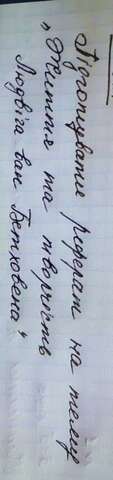 Підготувати реферат на тему
„Життя та творчість
Людвіга ван Бетховена"